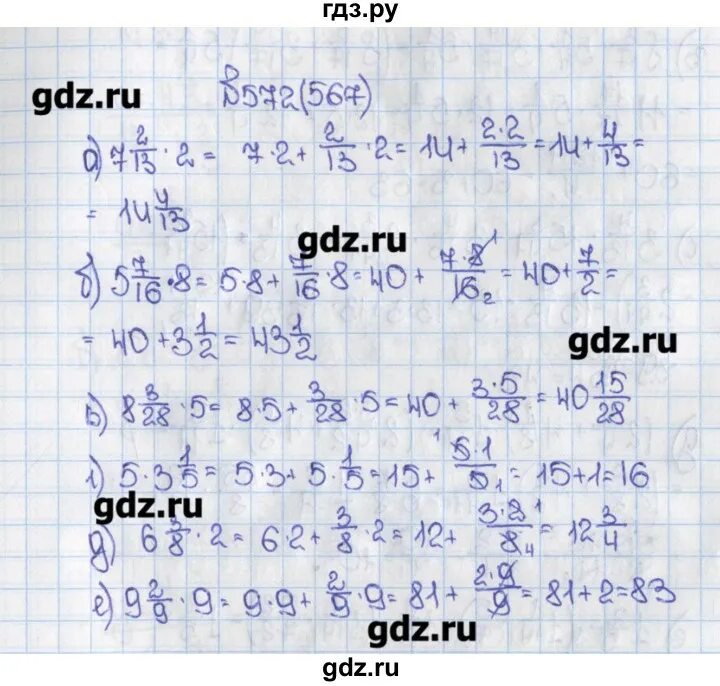 гдз.ру
gdz.ru
В 572(567)
а) 7 2/13 · 2 = 7·2 + 2/13 · 2 = 14 + 2·2/13 = 14 + 4/13 =
= 14 4/13
gdz.ru
б) 5 7/16 · 8 = 5·8 + 7/16 · 8 = 40 + 7·8 1/16 2 = 40 + 7/2 =
= 40 + 3 1/2 = 43 1/2
gdz.ru
в) 8 3/28 · 5 = 8·5 + 3/28 · 5 = 40 + 3·5/28 = 40 15/28
г) 5·3 1/5 = 5·3 + 5· 1/5 = 15 + 1 5·1/5 1 = 15+1=16
gdz.ru
д) 6 3/8 · 2 = 6·2 + 3/8 · 2 = 12 + 3·2 1/8 4 = 12 3/4
е) 9 2/9 · 9 = 9·9 + 2/9 · 9 = 81 + 2·9/9 = 81+2=83
gdz.ru
gdz.ru